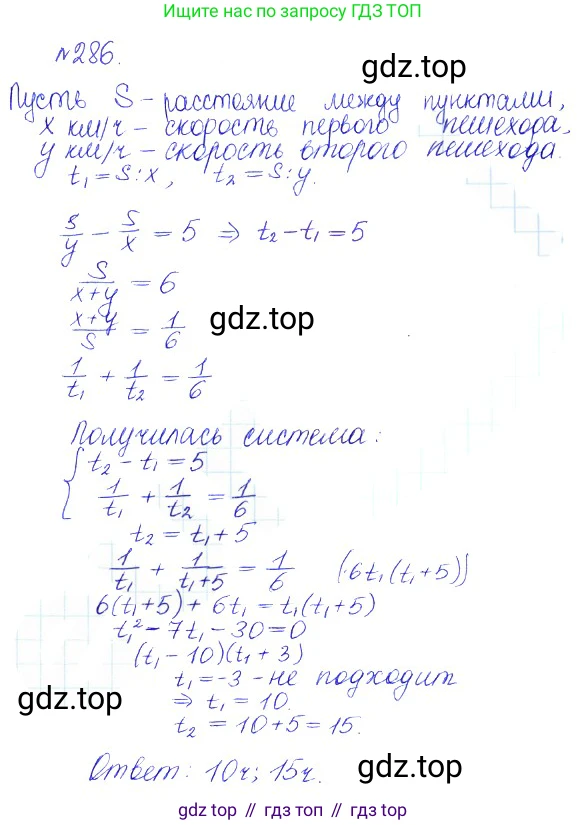 Ищите нас по запросу ГДЗ ТОП
№286.
gdz.top
Пусть S - расстояние между пунктами,
x км/ч - скорость первого пешехода,
y км/ч - скорость второго пешехода.
t₁ = S:x, t₂ = S:y.
S/y - S/x = 5 ⇒ t₂ - t₁ = 5
S/(x+y) = 6
(x+y)/S = 1/6
gdz.top
1/t₁ + 1/t₂ = 1/6
Получилась система:
{ t₂ - t₁ = 5
1/t₁ + 1/t₂ = 1/6
t₂ = t₁ + 5
1/t₁ + 1/(t₁+5) = 1/6 (·6t₁(t₁+5))
6(t₁+5) + 6t₁ = t₁(t₁+5)
t₁² - 7t₁ - 30 = 0
(t₁ - 10)(t₁ + 3)
t₁ = -3 - не подходит
⇒ t₁ = 10.
gdz.top
gdz.top
t₂ = 10 + 5 = 15.
Ответ: 10ч; 15ч.
gdz top // гдз топ // gdz.top // гдз топ